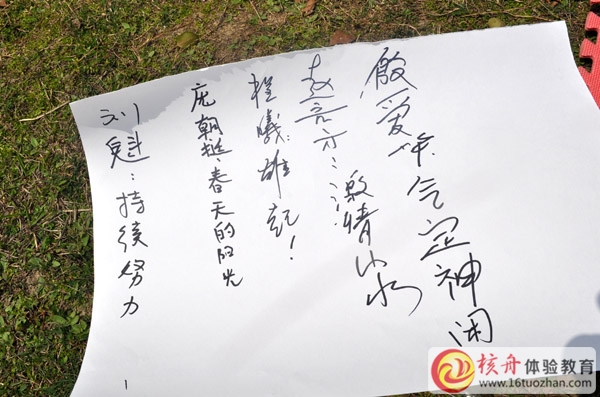 殷爱 气定神闲
赵亮：激情水
程曦：雄起！
庞朝挺：春天的阳光
刘魁：持续努力
核舟体验教育
www.16tuozhan.com